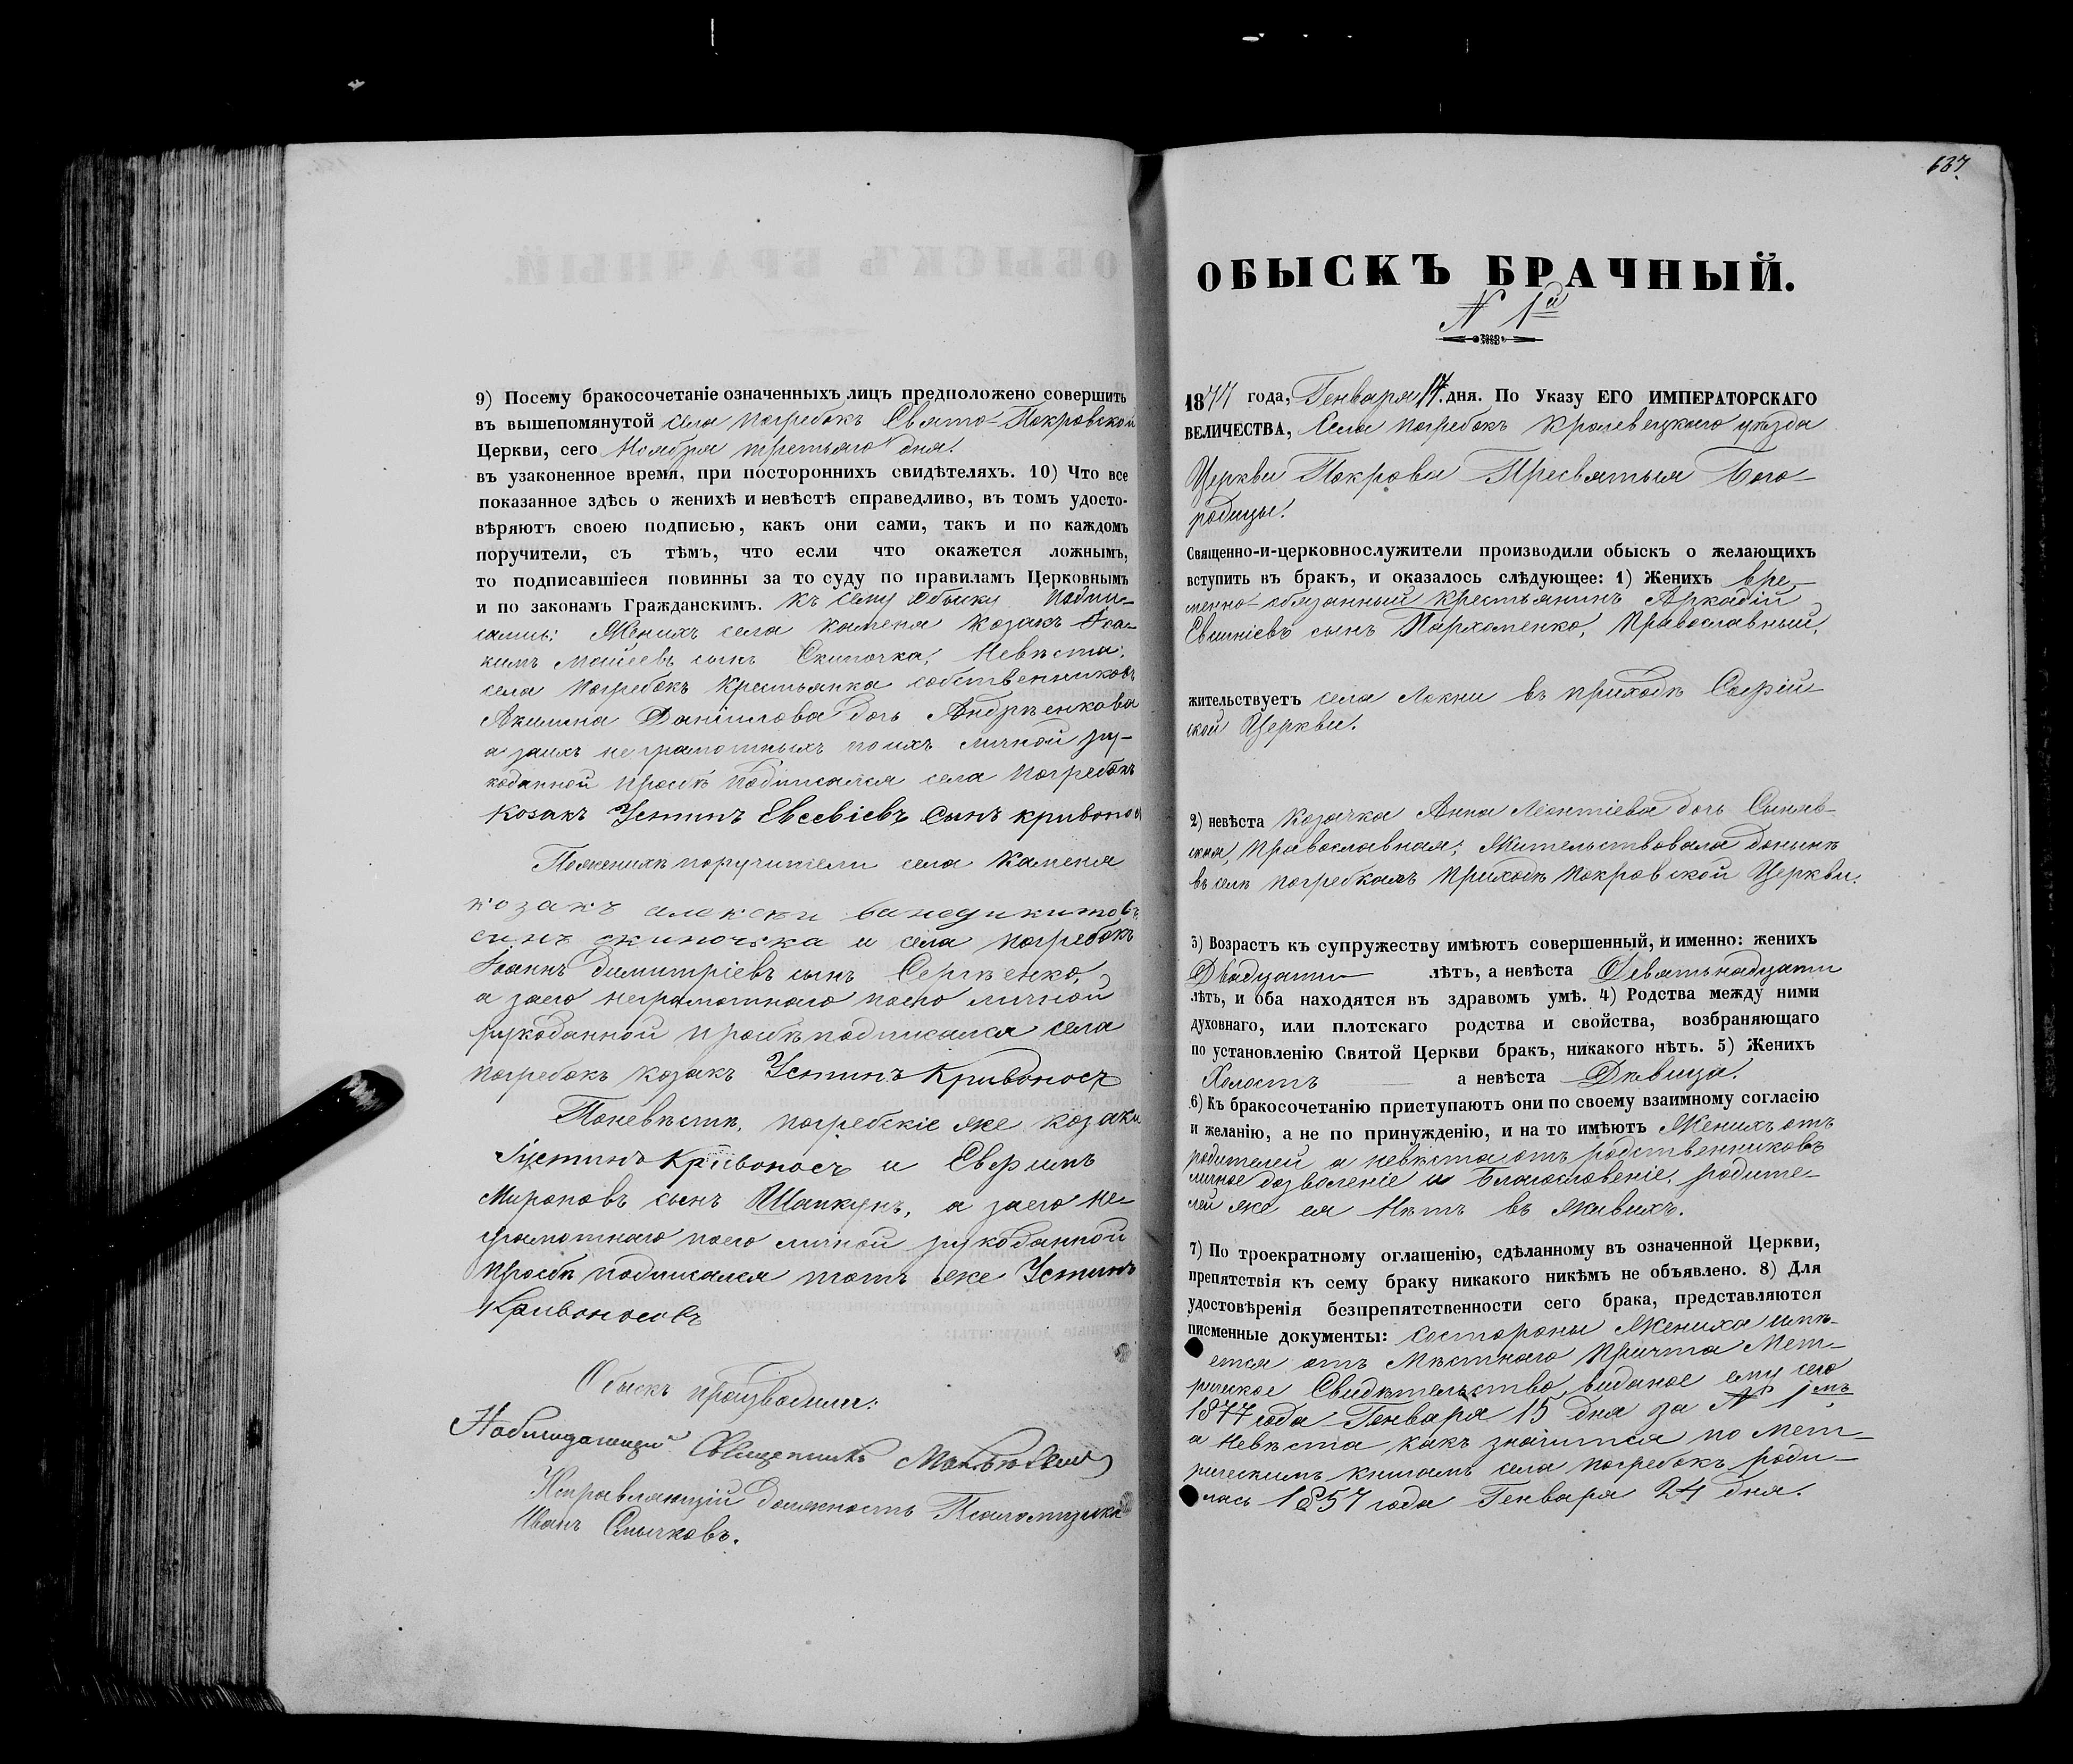 9) Посему бракосочетаніе означенныхъ лицъ предположено совершить
въ вышепомянутой села Погребокъ Свято-Покровской
Церкви, сего Ноября третьяго дня.
въ узаконенное время, при постороннихъ свидѣтеляхъ. 10) Что все
показанное здѣсь о женихѣ и невѣстѣ справедливо, въ томъ удосто-
вѣряютъ своею подписью, какъ они сами, такъ и по каждомъ
поручители, съ тѣмъ, что если что окажется ложнымъ,
то подписавшіеся повинны за то суду по правиламъ Церковнымъ
и по законамъ Гражданскимъ. Къ сему обыску подпи-
сались: Женихъ села Каменя козакъ Іоа-
кимъ сынъ Скиточка, Невѣста,
села Погребокъ крестьянка собственниковъ
Акилина Даніилова дочь Андрѣенкова
а заихъ неграмотныхъ поихъ личной ру-
коданной просьбѣ подписался села Погребокъ
козакъ Устинъ Евсевіевъ Сынъ кривонос
Поженихѣ поручители села Каменя
козакъ алексѣи
синъ и села погребокъ
Іоаннъ Димитріевъ сынъ Сергѣенко,
а заего неграмотнаго поего личной
рукоданной просьбѣ подписался села
Погребокъ козакъ Устинъ Кривоносъ
Поневѣстѣ, погребскіе же козаки
Іустинъ Кривоносъ и Евфимъ
Мироновъ сынъ Шапкунъ, а заего не-
грамотнаго поего личной рукоданной
просьбѣ подписался тотъ же Устинъ
Кривоносовъ
Обыскъ производили:
Наблюдающій Священникъ
Исправляющій должность Псаломщика
Иванъ Смычковъ.
637.
ОБЫСКЪ БРАЧНЫЙ.
N 1й
1877 года, Генваря 17. дня. По Указу ЕГО ИМПЕРАТОРСКАГО
ВЕЛИЧЕСТВА, Села Погребокъ Кролевецкаго уѣзда
Церкви Покрова Пресвятыя Бого-
родицы.
Священно-и-церковнослужители производили обыскъ о желающихъ
вступить въ бракъ, и оказалось слѣдующее: 1) Женихъ вре-
менно-обязанный крестьянинъ Аркадій
сынъ Пархоменко, Православный,
жительствуетъ села Локни въ приходѣ Софій-
ской Церкви.
2) невѣста козачка Анна Леонтіева дочь Синяв-
ская, Православная, Жительствовала донынѣ
въ селѣ погребкахъ приходѣ Покровской Церкви.
3) Возрастъ къ супружеству имѣютъ совершенный, и именно: женихъ
Двадцати лѣтъ, а невѣста Девятьнадцати
лѣтъ, и оба находятся въ здравомъ умѣ. 4) Родства между ними
духовнаго, или плотскаго родства и свойства, возбраняющаго
по установленію Святой Церкви бракъ, никакого нѣтъ. 5) Женихъ
Холостъ а невѣста Дѣвица.
6) Къ бракосочетанію приступаютъ они по своему взаимному согласію
и желанію, а не по принужденію, и на то имѣютъ Женихъ отъ
родителей а невѣста отъ родственниковъ
личное дозволеніе и Благословеніе, родите-
лей же ея Нѣтъ въ живыхъ.
7) По троекратному оглашенію, сдѣланному въ означенной Церкви,
препятствія къ сему браку никакого никѣмъ не объявлено. 8) Для
удостовѣренія безпрепятственности сего брака, представляются
писменные документы: состороны Жениха имѣ-
ется отъ Мѣстнаго Причта Мет-
рическое Свидѣтельство, виданое ему сего
1877 года Генваря 15 дня за № 1мъ
а Невѣста какъ значится по Мет-
рическимъ книгамъ села Погребокъ роди-
лась 1857 года Генваря 24 дня.